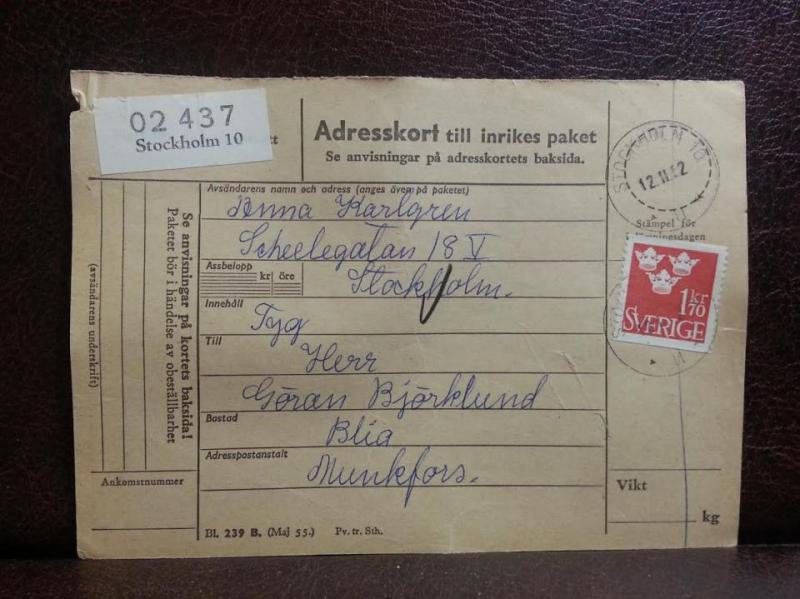 02 437
Stockholm 10
Adresskort till inrikes paket
Se anvisningar på adresskortets baksida.
STOCKHOLM 10
Stämpel för
Avsändarens namn och adress (anges även på paketet)
Anna Karlgren
Scheelegatan 18 V
Stockholm.
Assbelopp
kr öre
Innehåll
Tyg
Till
Herr
Göran Björklund
Bostad
Blia
Adresspostanstalt
Munkfors.
1 kr 70
SVERIGE
Se anvisningar på kortets baksida!
Paketet bör i händelse av obeställbarhet
(avsändarens underskrift)
Ankomstnummer
Vikt
kg
Bl. 239 B. (Maj 55.) Pv. tr. Sth.